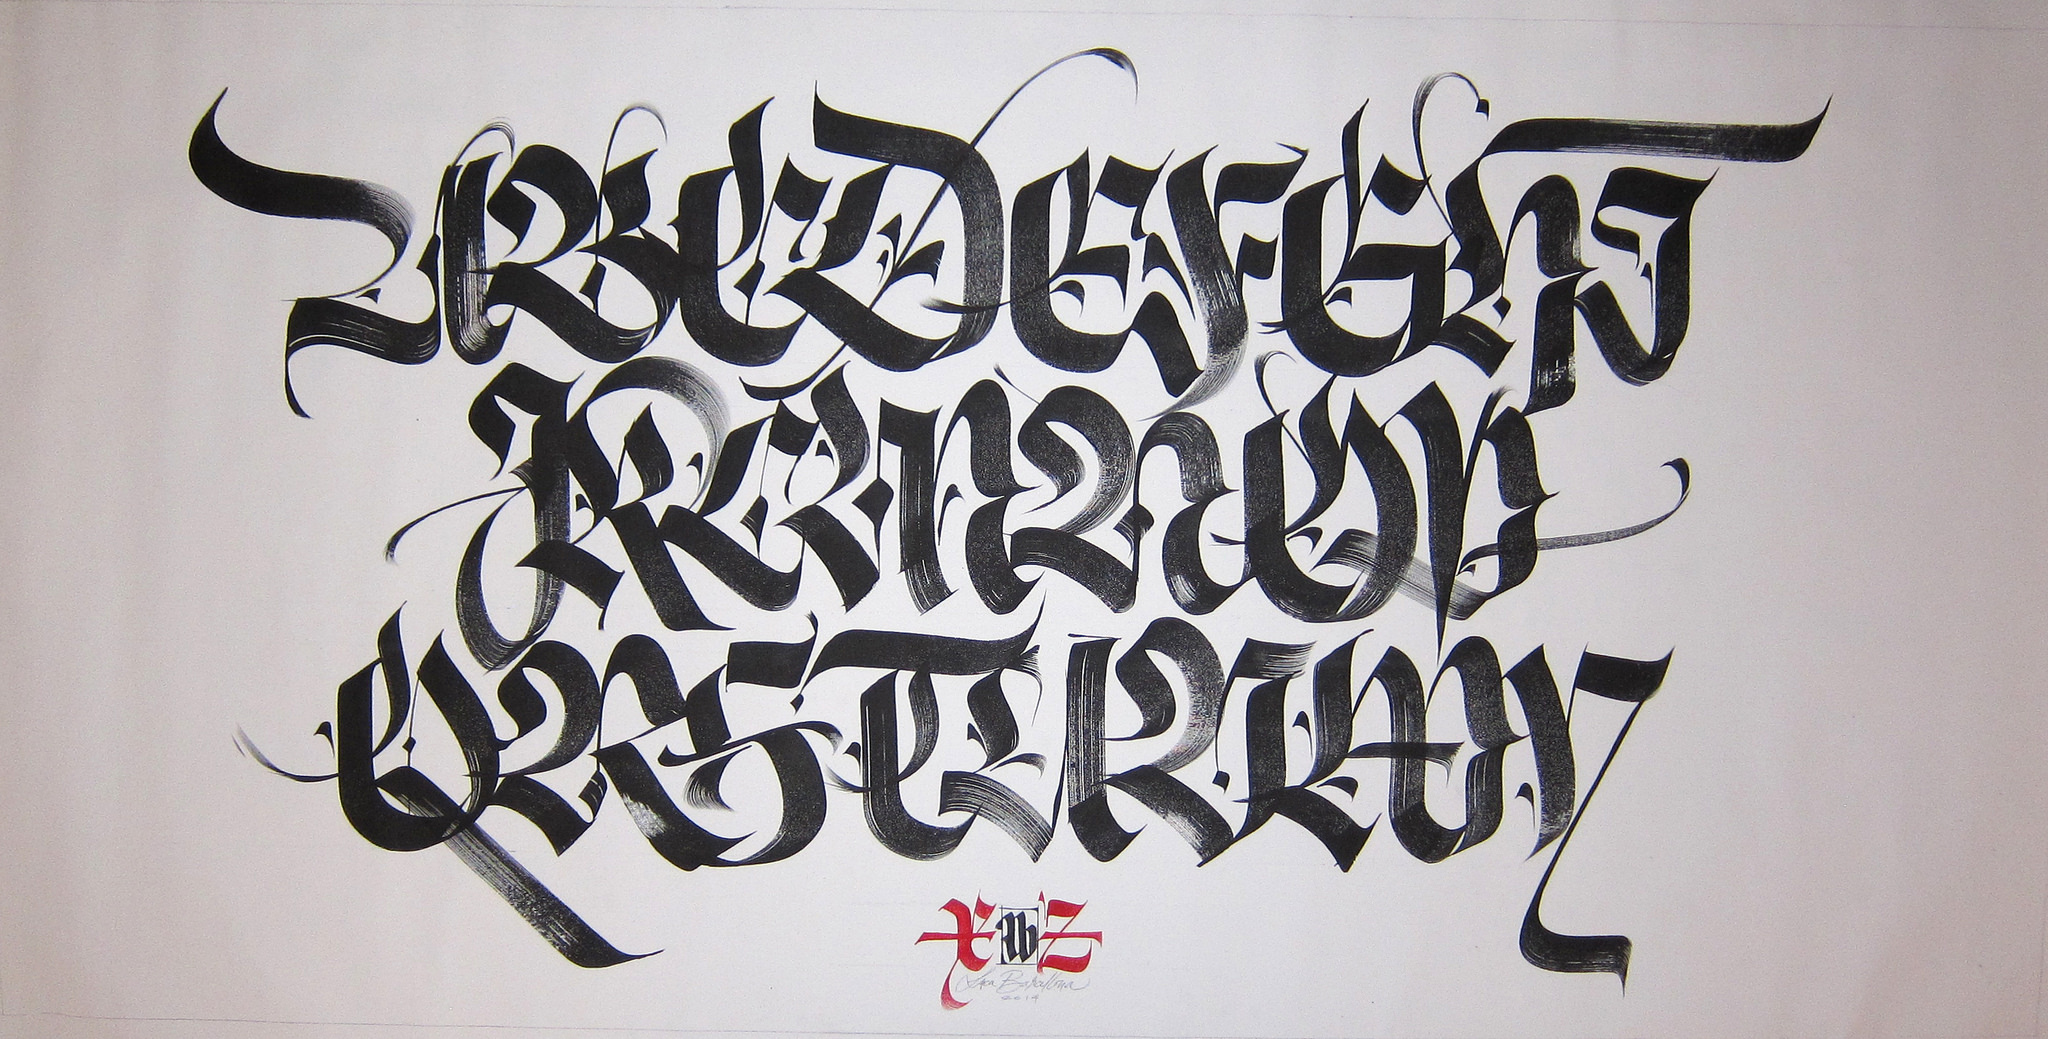 ABCDEFGHI
JKLMNOP
QRSTUVWY
X lb Z
Luca Barcellona
2014